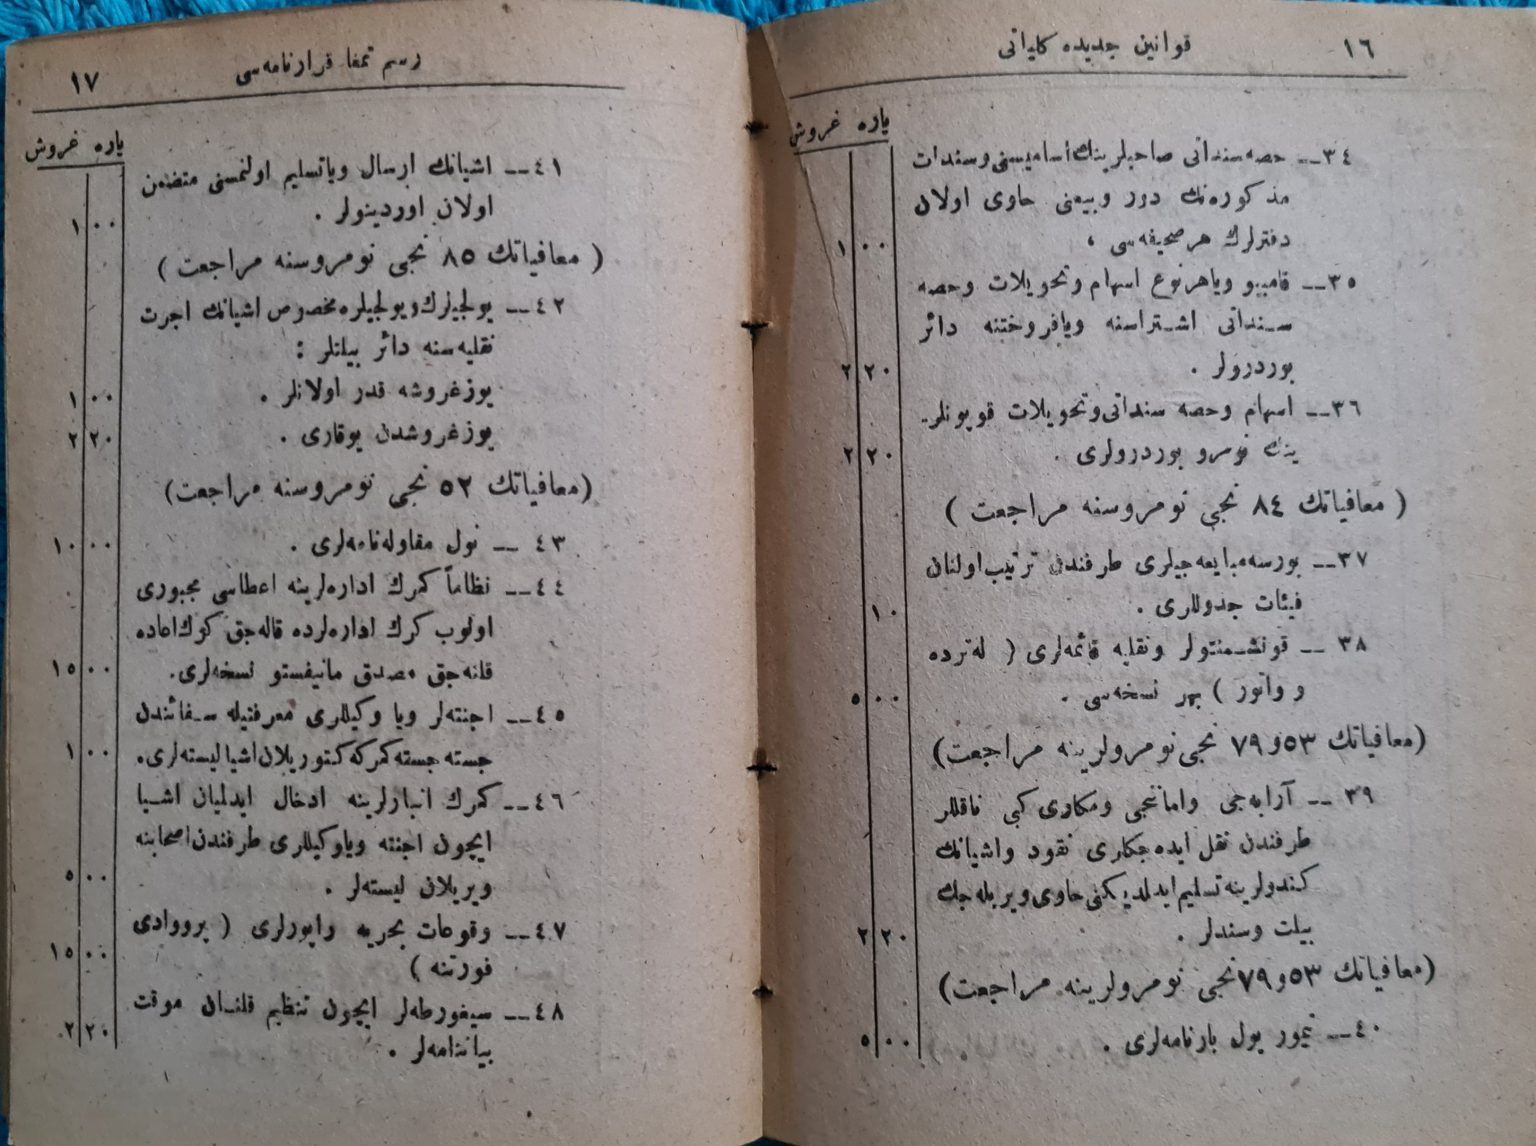 ١٦ قوانین جدیده کلیاتی
پاره غروش
٣٤ — حصه سنداتی صاحبلرینك اسامیسنی و سندات
مذکوره‌نك دور و بیعنی حاوی اولان
دفترلرك هر صحیفه‌سی ، ٠٠ ١
٣٥ — قامبیو ویا هر نوع اسهام و تحویلات و حصه
سنداتی اشتراسنه ویا فروختنه دائر
بوردرولر . ٢٠ ٢
٣٦ — اسهام و حصه سنداتی و تحویلات قوپونلر‌-
ینك نومرو بوردرولری . ٢٠ ٢
( معافیاتك ٨٤ نجی نومروسنه مراجعت )
٣٧ — بورسه مبایعه‌جیلری طرفندن ترتیب اولنان
فیئات جدوللری . ١٠
٣٨ — قونشمنتولر و نقلیه قائمه‌لری ( له‌تر‌ده
وواتور ) بهر نسخه‌سی . ٠٠ ٥
(معافیاتك ٥٣ و ٧٩ نجی نومرولرینه مراجعت)
٣٩ — آرابه‌جی و امانتجی و مکاری کبی ناقللر
طرفندن نقل ایده‌جکلری نقود و اشیانك
کندولرینه تسلیم ایدلدیکنی حاوی ویریله‌جك
بیلت و سندلر . ٢٠ ٢
(معافیاتك ٥٣ و ٧٩ نجی نومرولرینه مراجعت)
٤٠ — تیمور یول بارنامه‌لری . ٠٠ ٥
رسم تمغا قرارنامه‌سی ١٧
پاره غروش
٤١ — اشیانك ارسال ویا تسلیم اولنمسنی متضمن
اولان اوردینولر . ٠٠ ١
( معافیاتك ٨٥ نجی نومروسنه مراجعت )
٤٢ — یولجیلرك و یولجیلره مخصوص اشیانك اجرت
نقلیه‌سنه دائر بیلتلر :
یوز غروشه قدر اولانلر . ٠٠ ١
یوز غروشدن یوقاری . ٢٠ ٢
(معافیاتك ٥٢ نجی نومروسنه مراجعت)
٤٣ — نول مقاوله‌نامه‌لری . ٠٠ ١٠
٤٤ — نظاماً کمرك اداره‌لرینه اعطاسی مجبوری
اولوب کرك اداره‌لرده قاله‌جق کرك اعاده
قلنه‌جق مصدق مانیفستو نسخه‌لری. ٠٠ ١٥
٤٥ — اجنته‌لر ویا وکیللری معرفتیله سفائندن
جسته جسته کمرکه کتوریلان اشیا لیسته‌لری. ٠٠ ١
٤٦ — کمرك انبارلرینه ادخال ایدلیان اشیا
ایچون اجنته ویا وکیللری طرفندن اصحابنه
ویریلان لیسته‌لر . ٠٠ ٥
٤٧ — وقوعات بحریه راپورلری ( پرووادی
فورتنه ) ٠٠ ١٥
٤٨ — سیغورطه‌لر ایچون تنظیم قلنان موقت
بیاننامه‌لر . ٢٠ ٢